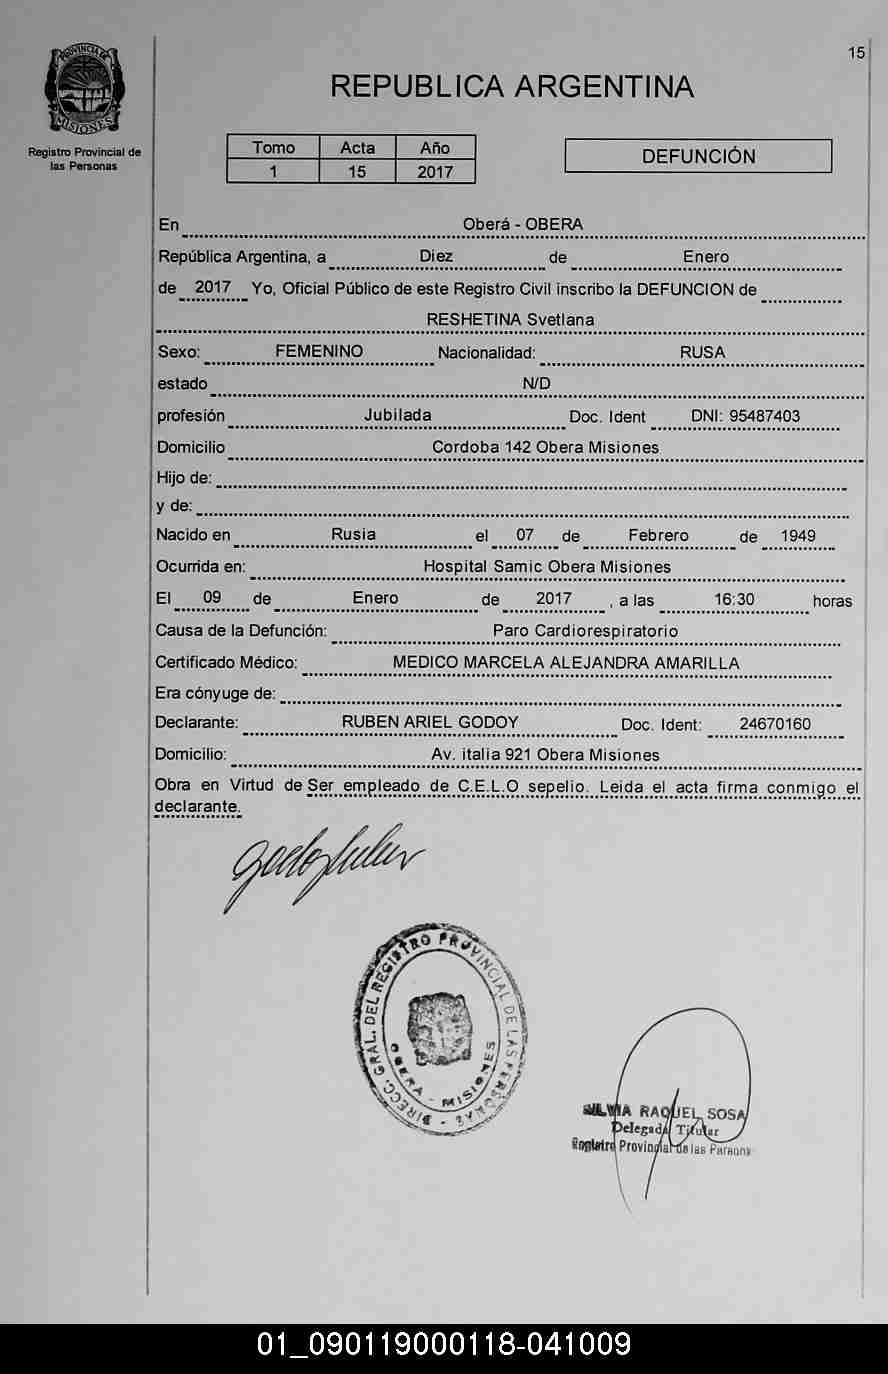 15
PROVINCIA DE
MISIONES
Registro Provincial de
las Personas
REPUBLICA ARGENTINA
Tomo Acta Año
1 15 2017
DEFUNCIÓN
En Oberá - OBERA
República Argentina, a Diez de Enero
de 2017 Yo, Oficial Público de este Registro Civil inscribo la DEFUNCION de
RESHETINA Svetlana
Sexo: FEMENINO Nacionalidad: RUSA
estado N/D
profesión Jubilada Doc. Ident DNI: 95487403
Domicilio Cordoba 142 Obera Misiones
Hijo de:
y de:
Nacido en Rusia el 07 de Febrero de 1949
Ocurrida en: Hospital Samic Obera Misiones
El 09 de Enero de 2017 , a las 16:30 horas
Causa de la Defunción: Paro Cardiorespiratorio
Certificado Médico: MEDICO MARCELA ALEJANDRA AMARILLA
Era cónyuge de:
Declarante: RUBEN ARIEL GODOY Doc. Ident: 24670160
Domicilio: Av. italia 921 Obera Misiones
Obra en Virtud de Ser empleado de C.E.L.O sepelio. Leida el acta firma conmigo el
declarante.
DIRECC. GRAL. DEL REGISTRO PROVINCIAL DE LAS PERSONAS
OBERA - MISIONES
SILVIA RAQUEL SOSA
Delegada Titular
Registro Provincial de las Personas
01_090119000118-041009